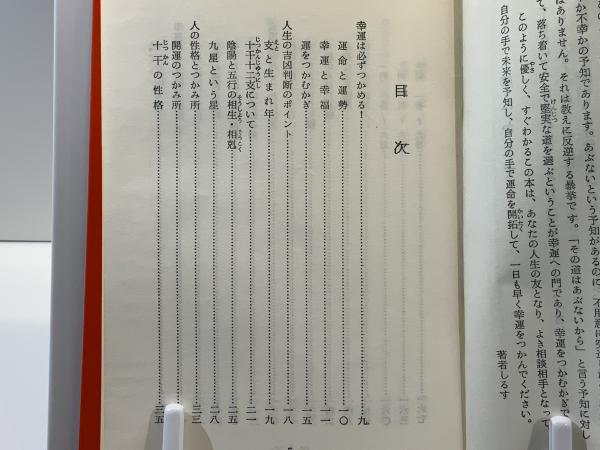 か不幸かの予知であります。あぶないという予知があるのに、不用意に
はありません。それは教えに反逆する暴挙です。「その道はあぶないから」と言う予知に対し
て、落ち着いて安全で堅実な道を選ぶということが幸運への門であり、幸運をつかむかぎで
このように優しく、すぐわかるこの本は、あなたの人生の友となり、よき相談相手となって
自分の手で未来を予知し、自分の手で運命を開拓して、一日も早く幸運をつかんでください。
著者しるす
目次
幸運は必ずつかめる!……九
運命と運勢……一〇
幸運と幸福……一一
運をつかむかぎ……一五
人生の吉凶判断のポイント……一八
支と生まれ年……一九
十干十二支について……二一
陰陽と五行の相生・相剋……二五
九星という星……二八
人の性格とつかみ所……三三
開運のつかみ所……三三
十干の性格……三五